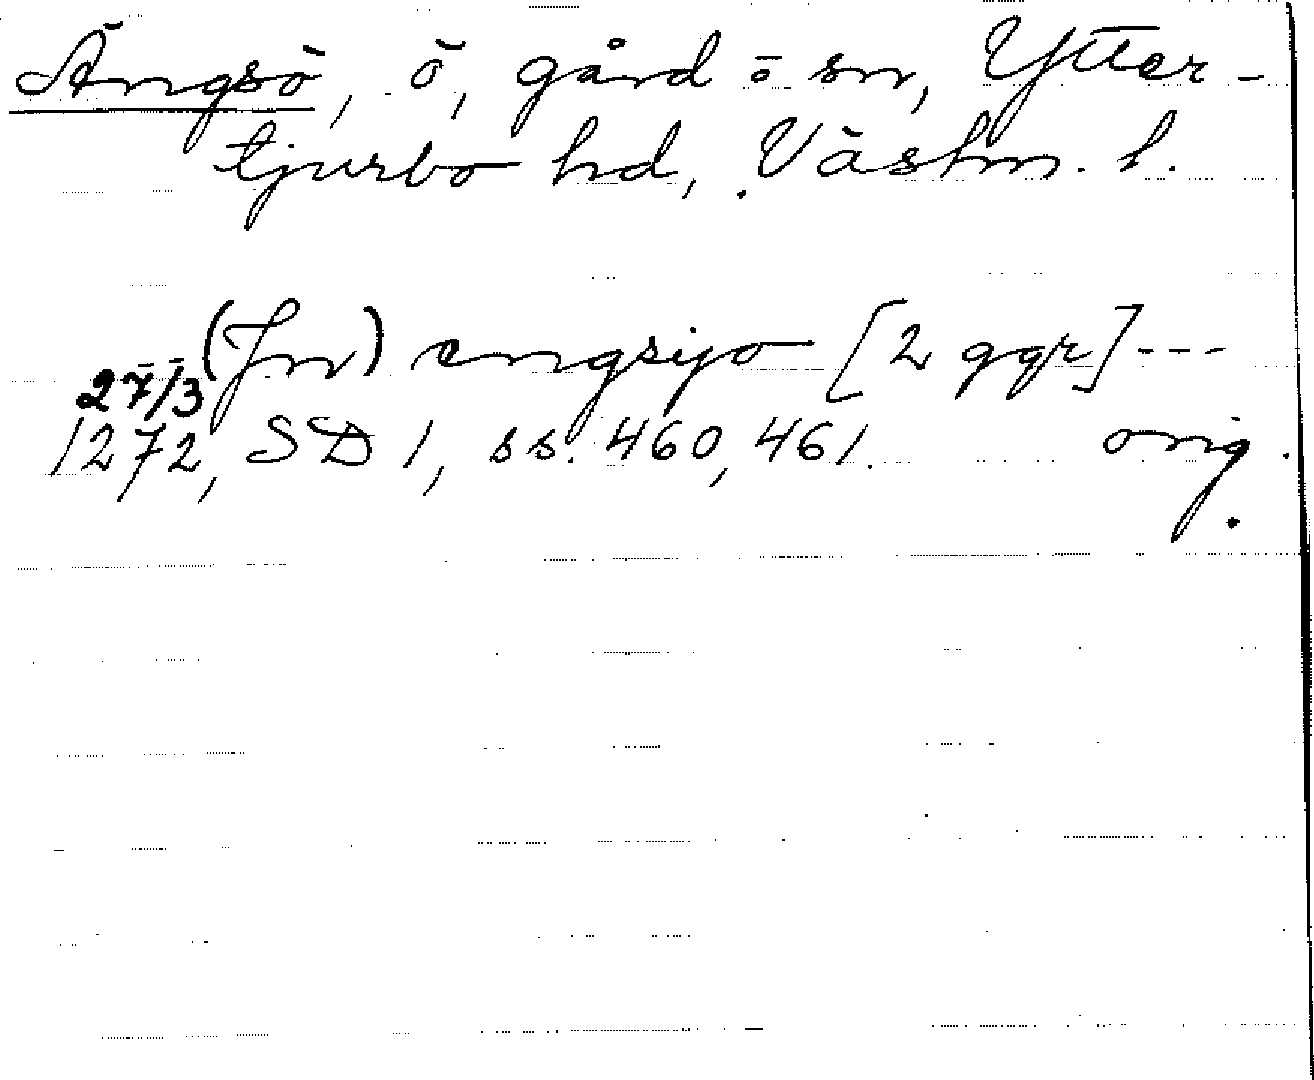 Ängsö, ö, gård o sn, Ytter-
tjurbo hd, Västm. l.
(Jn) engsyo [2 ggr] ---
27/3
1272, SD 1, ss. 460, 461. orig.